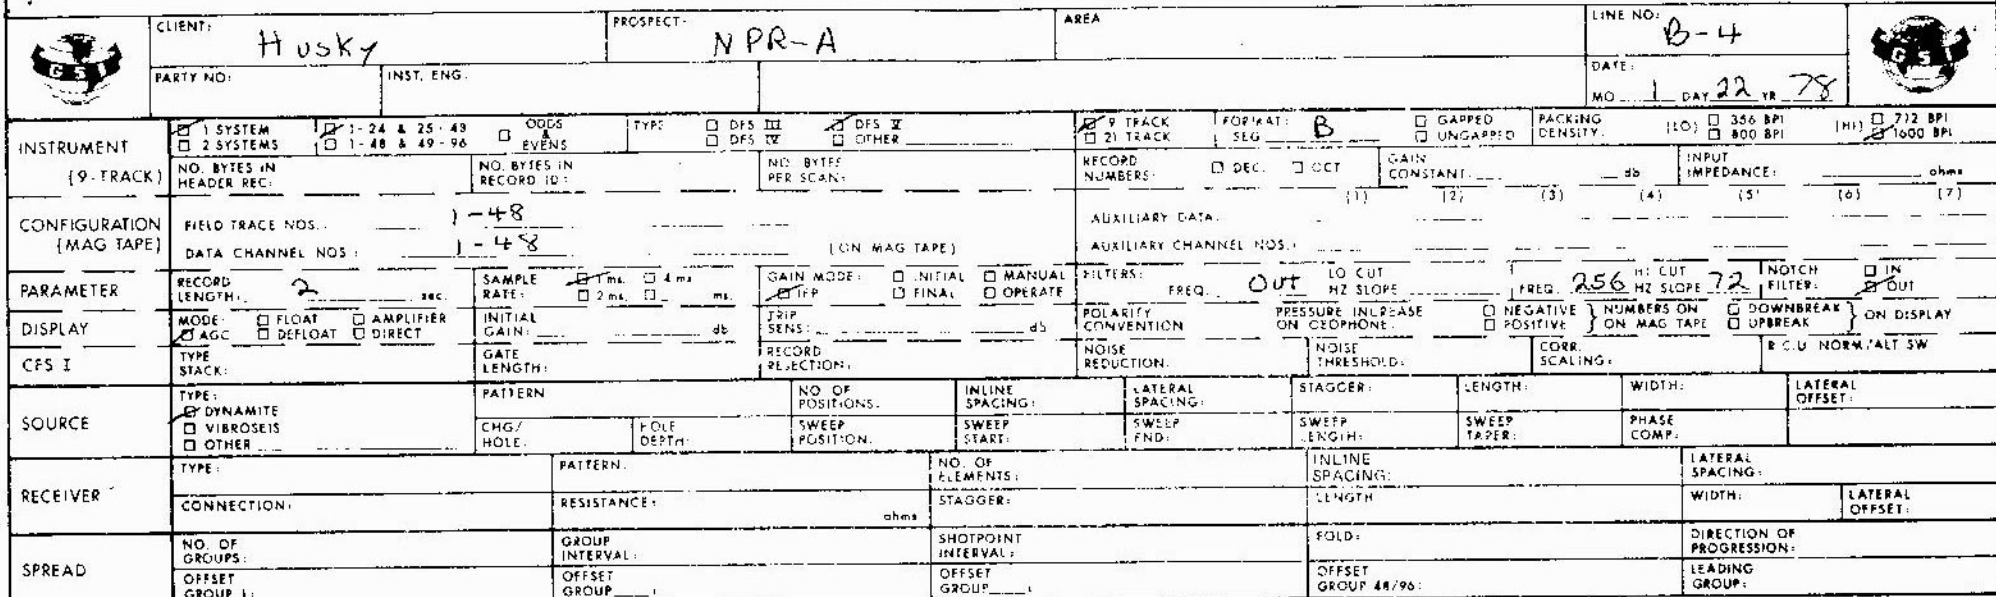 CLIENT: Husky PROSPECT: NPR-A AREA LINE NO: B-4
GSI GSI
PARTY NO: INST. ENG. DATE:
MO 1 DAY 22 YR 78
INSTRUMENT 1 SYSTEM 1-24 & 25-48 ODDS & EVENS TYPE DFS III DFS V 9 TRACK FORMAT: B GAPPED PACKING (LO) 356 BPI (HI) 712 BPI
2 SYSTEMS 1-48 & 49-96 DFS IV OTHER 21 TRACK SEG UNGAPPED DENSITY. 800 BPI 1600 BPI
(9-TRACK) NO. BYTES IN HEADER REC: NO. BYTES IN RECORD ID: NO. BYTES PER SCAN: RECORD NUMBERS: DEC. OCT GAIN CONSTANT. db INPUT IMPEDANCE: ohms
(1) (2) (3) (4) (5) (6) (7)
CONFIGURATION FIELD TRACE NOS. 1-48 AUXILIARY DATA.
(MAG TAPE) DATA CHANNEL NOS: 1-48 (ON MAG TAPE) AUXILIARY CHANNEL NOS.:
PARAMETER RECORD LENGTH: 2 sec. SAMPLE RATE: 1 ms. 4 ms 2 ms. ms. GAIN MODE: INITIAL MANUAL IFP FINAL OPERATE FILTERS: FREQ. Out LO CUT HZ SLOPE FREQ. 256 HI CUT HZ SLOPE 72 NOTCH FILTER: IN OUT
DISPLAY MODE: FLOAT AMPLIFIER AGC DEFLOAT DIRECT INITIAL GAIN: db TRIP SENS: db POLARITY CONVENTION PRESSURE INCREASE ON GEOPHONE. NEGATIVE POSITIVE NUMBERS ON MAG TAPE DOWNBREAK UPBREAK ON DISPLAY
CFS I TYPE STACK: GATE LENGTH: RECORD REJECTION: NOISE REDUCTION. NOISE THRESHOLD: CORR. SCALING: R.C.U NORM/ALT SW
SOURCE TYPE: PATTERN NO OF POSITIONS. INLINE SPACING: LATERAL SPACING: STAGGER: LENGTH: WIDTH: LATERAL OFFSET:
DYNAMITE
VIBROSEIS CHG/HOLE. HOLE DEPTH: SWEEP POSITION. SWEEP START: SWEEP END: SWEEP LENGTH: SWEEP TAPER: PHASE COMP:
OTHER
RECEIVER TYPE: PATTERN. NO. OF ELEMENTS: INLINE SPACING: LATERAL SPACING:
CONNECTION: RESISTANCE: ohms STAGGER: LENGTH WIDTH: LATERAL OFFSET:
SPREAD NO. OF GROUPS: GROUP INTERVAL: SHOTPOINT INTERVAL: FOLD: DIRECTION OF PROGRESSION:
OFFSET GROUP 1: OFFSET GROUP : OFFSET GROUP : OFFSET GROUP 48/96: LEADING GROUP: